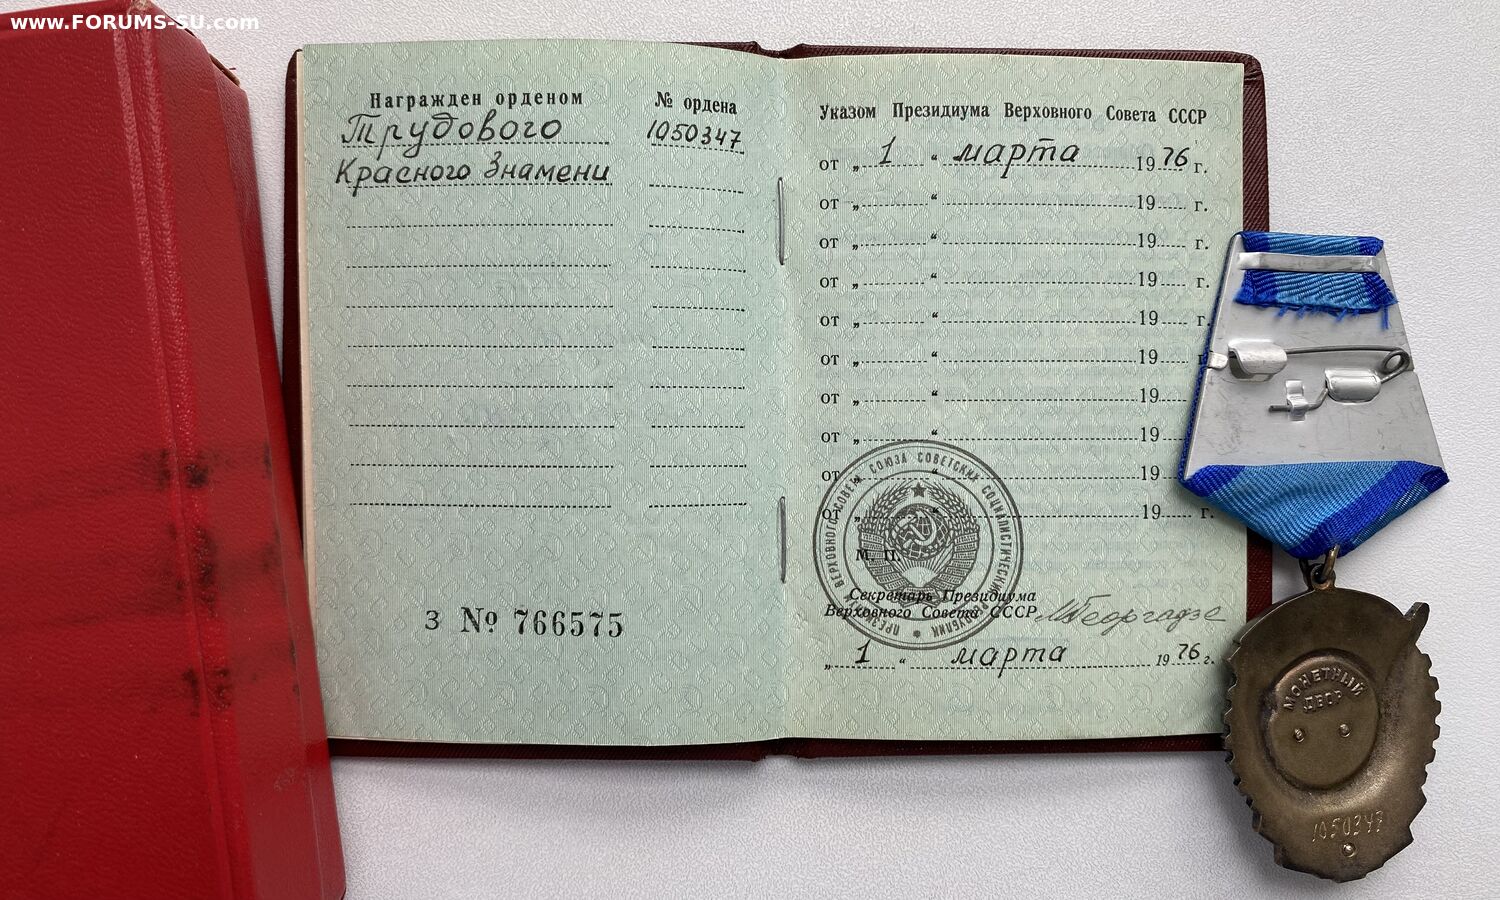 www.FORUMS-SU.com
Награжден орденом
№ ордена
Трудового
1050347
Красного Знамени
З № 766575
Указом Президиума Верховного Совета СССР
от „ 1 “ марта 1976 г.
от „ “ 19 г.
от „ “ 19 г.
от „ “ 19 г.
от „ “ 19 г.
от „ “ 19 г.
от „ “ 19
от „ “ 19
от „ “ 19
от „ “ 19 г.
ПРЕЗИДИУМ ВЕРХОВНОГО СОВЕТА СОЮЗА СОВЕТСКИХ СОЦИАЛИСТИЧЕСКИХ РЕСПУБЛИК
М. П.
Секретарь Президиума
Верховного Совета СССР МГеоргадзе
„ 1 “ марта 1976 г.
МОНЕТНЫЙ
ДВОР
1050347